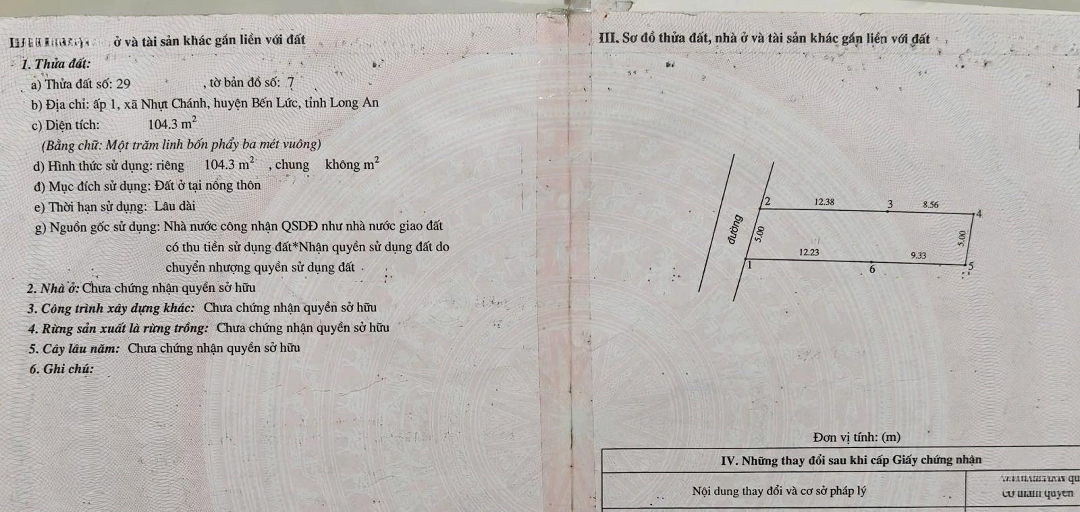 ở và tài sản khác gắn liền với đất
1. Thửa đất:
a) Thửa đất số: 29 , tờ bản đồ số: 7
b) Địa chỉ: ấp 1, xã Nhựt Chánh, huyện Bến Lức, tỉnh Long An
c) Diện tích: 104.3 m²
(Bằng chữ: Một trăm linh bốn phẩy ba mét vuông)
d) Hình thức sử dụng: riêng 104.3 m² , chung không m²
đ) Mục đích sử dụng: Đất ở tại nông thôn
e) Thời hạn sử dụng: Lâu dài
g) Nguồn gốc sử dụng: Nhà nước công nhận QSDĐ như nhà nước giao đất
có thu tiền sử dụng đất*Nhận quyền sử dụng đất do
chuyển nhượng quyền sử dụng đất
2. Nhà ở: Chưa chứng nhận quyền sở hữu
3. Công trình xây dựng khác: Chưa chứng nhận quyền sở hữu
4. Rừng sản xuất là rừng trồng: Chưa chứng nhận quyền sở hữu
5. Cây lâu năm: Chưa chứng nhận quyền sở hữu
6. Ghi chú:
III. Sơ đồ thửa đất, nhà ở và tài sản khác gắn liền với đất
2 12.38 3 8.56 4
đường 5.00 5.00
1 12.23 6 9.33 5
Đơn vị tính: (m)
IV. Những thay đổi sau khi cấp Giấy chứng nhận
Nội dung thay đổi và cơ sở pháp lý
quyền